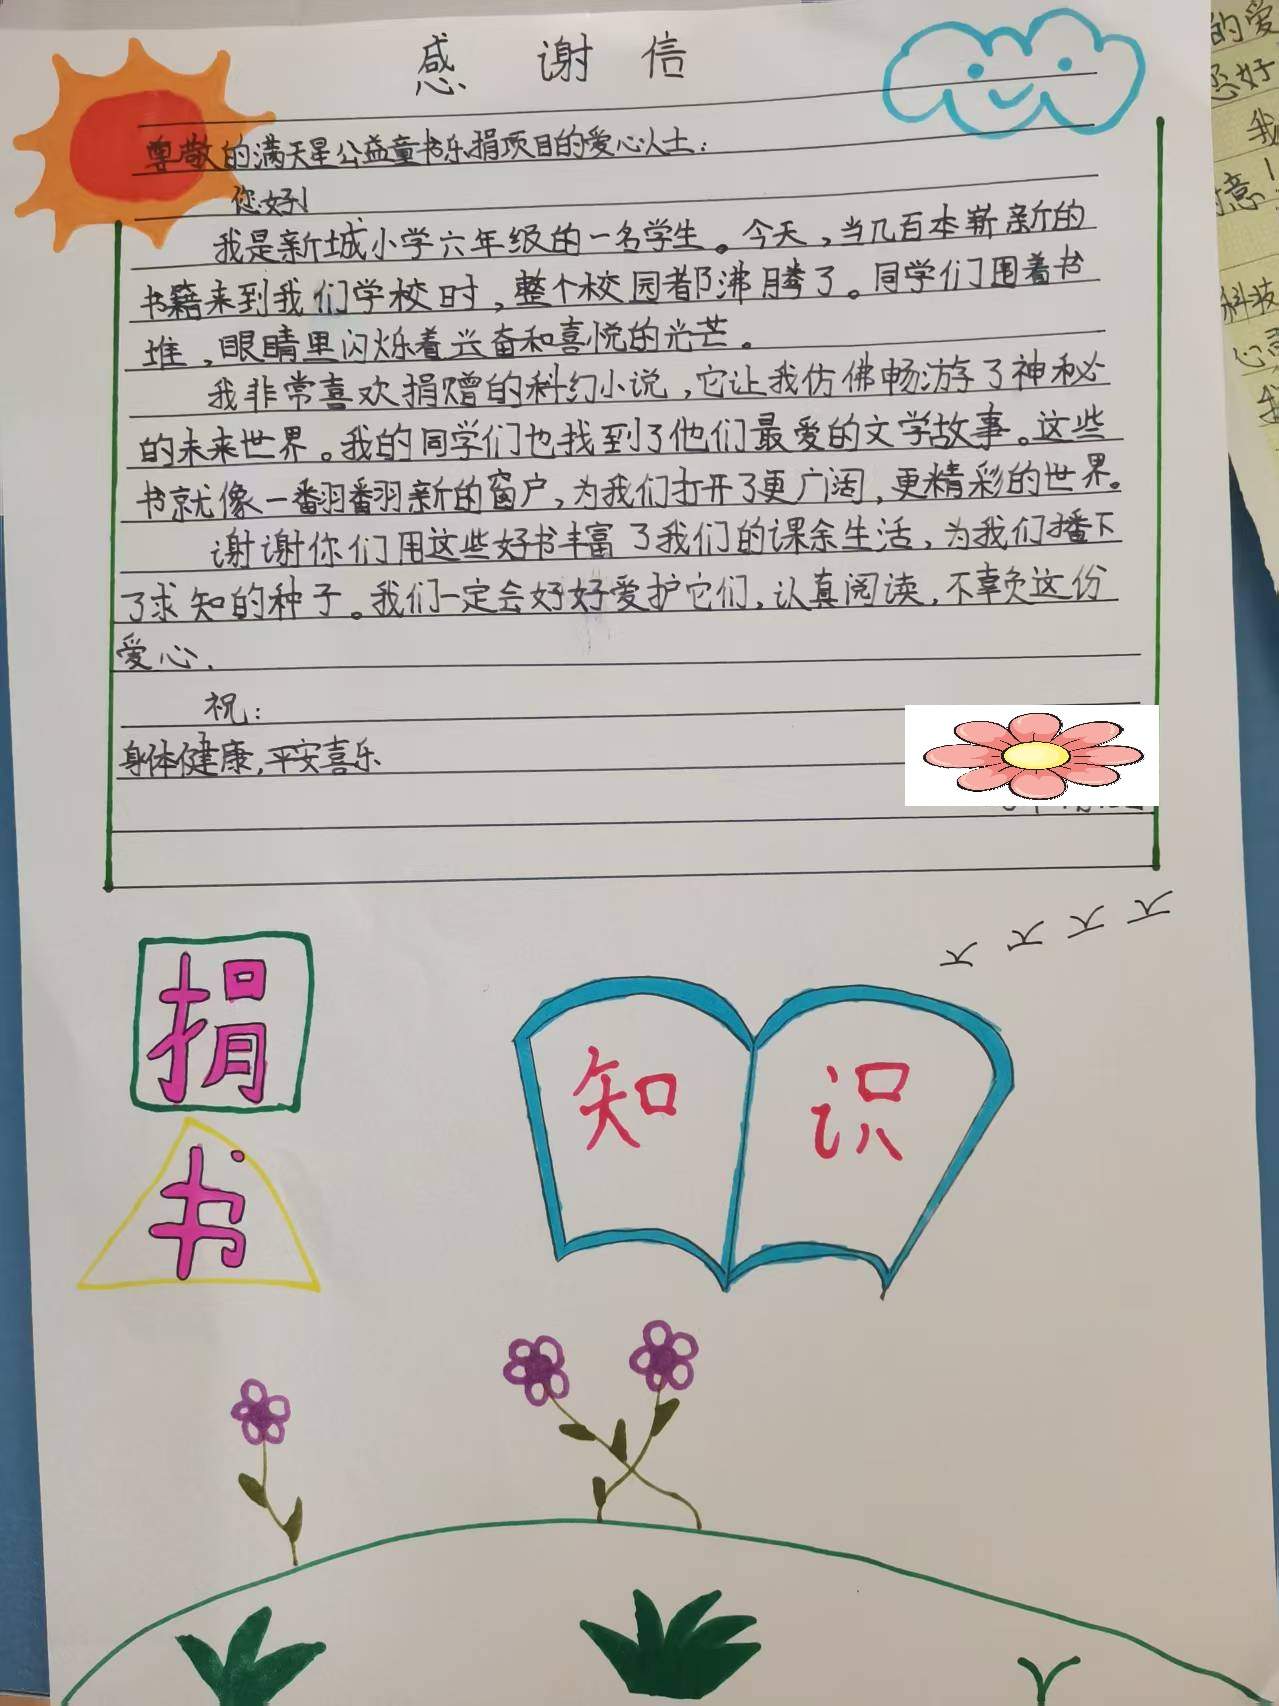 感谢信
尊敬的满天星公益童书乐捐项目的爱心人士：
您好！
我是新城小学六年级的一名学生。今天，当几百本崭新的
书籍来到我们学校时，整个校园都沸腾了。同学们围着书
堆，眼睛里闪烁着兴奋和喜悦的光芒。
我非常喜欢捐赠的科幻小说，它让我仿佛畅游了神秘
的未来世界。我的同学们也找到了他们最爱的文学故事。这些
书就像一翻翻新的窗户，为我们打开了更广阔，更精彩的世界。
谢谢你们用这些好书丰富了我们的课余生活，为我们播下
了求知的种子。我们一定会好好爱护它们，认真阅读，不辜负这份
爱心.
祝：
身体健康，平安喜乐
捐
书
知识
的爱
您好
我
意！
科技
我